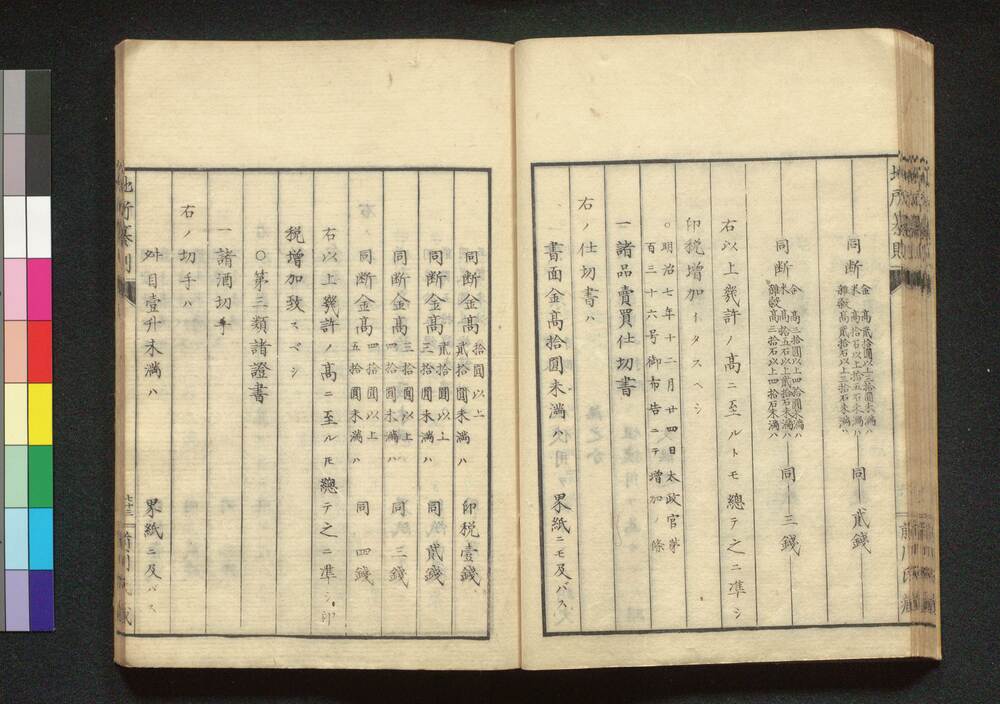 同断 金高貳拾圓以上三拾圓未満ハ 米高拾石以上拾五石未満ハ 雜穀高貳拾石以上三拾石未満ハ 同 貳錢
同断 金高三拾圓以上四拾圓未満ハ 米高拾五石以上貳拾石未満ハ 雜穀高三拾石以上四拾石未満ハ 同 三錢
右以上幾許ノ高ニ至ルトモ總テ之ニ準シ
印税増加イタスヘシ
○明治七年十二月廿四日太政官第
百三十六号御布告ニテ増加ノ條
一諸品賣買仕切書
右ノ仕切書ハ
書面金高拾圓未満ハ 界紙ニモ及バス
同断金高拾圓以上貳拾圓未満ハ 印税壹錢
同断金高貳拾圓以上三拾圓未満ハ 同 貳錢
同断金高三拾圓以上四拾圓未満ハ 同 三錢
同断金高四拾圓以上五拾圓未満ハ 同 四錢
右以上幾許ノ高ニ至ルトモ總テ之ニ準シ印
税増加致スベシ
○第三類諸證書
一諸酒切手
右ノ切手ハ
舛目壹升未満ハ 界紙ニ及バス
地所
七十三